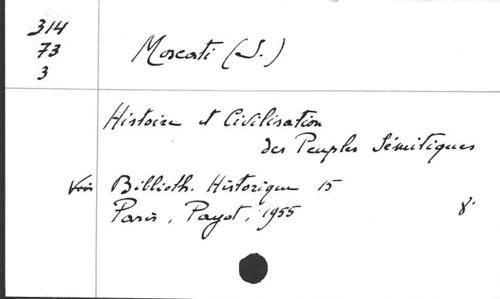 314
73
3
Moscati (S.)
Histoire et Civilisation
des Peuples Sémitiques
Voir Biblioth. Historique 15
Paris, Payot, 1955 8°